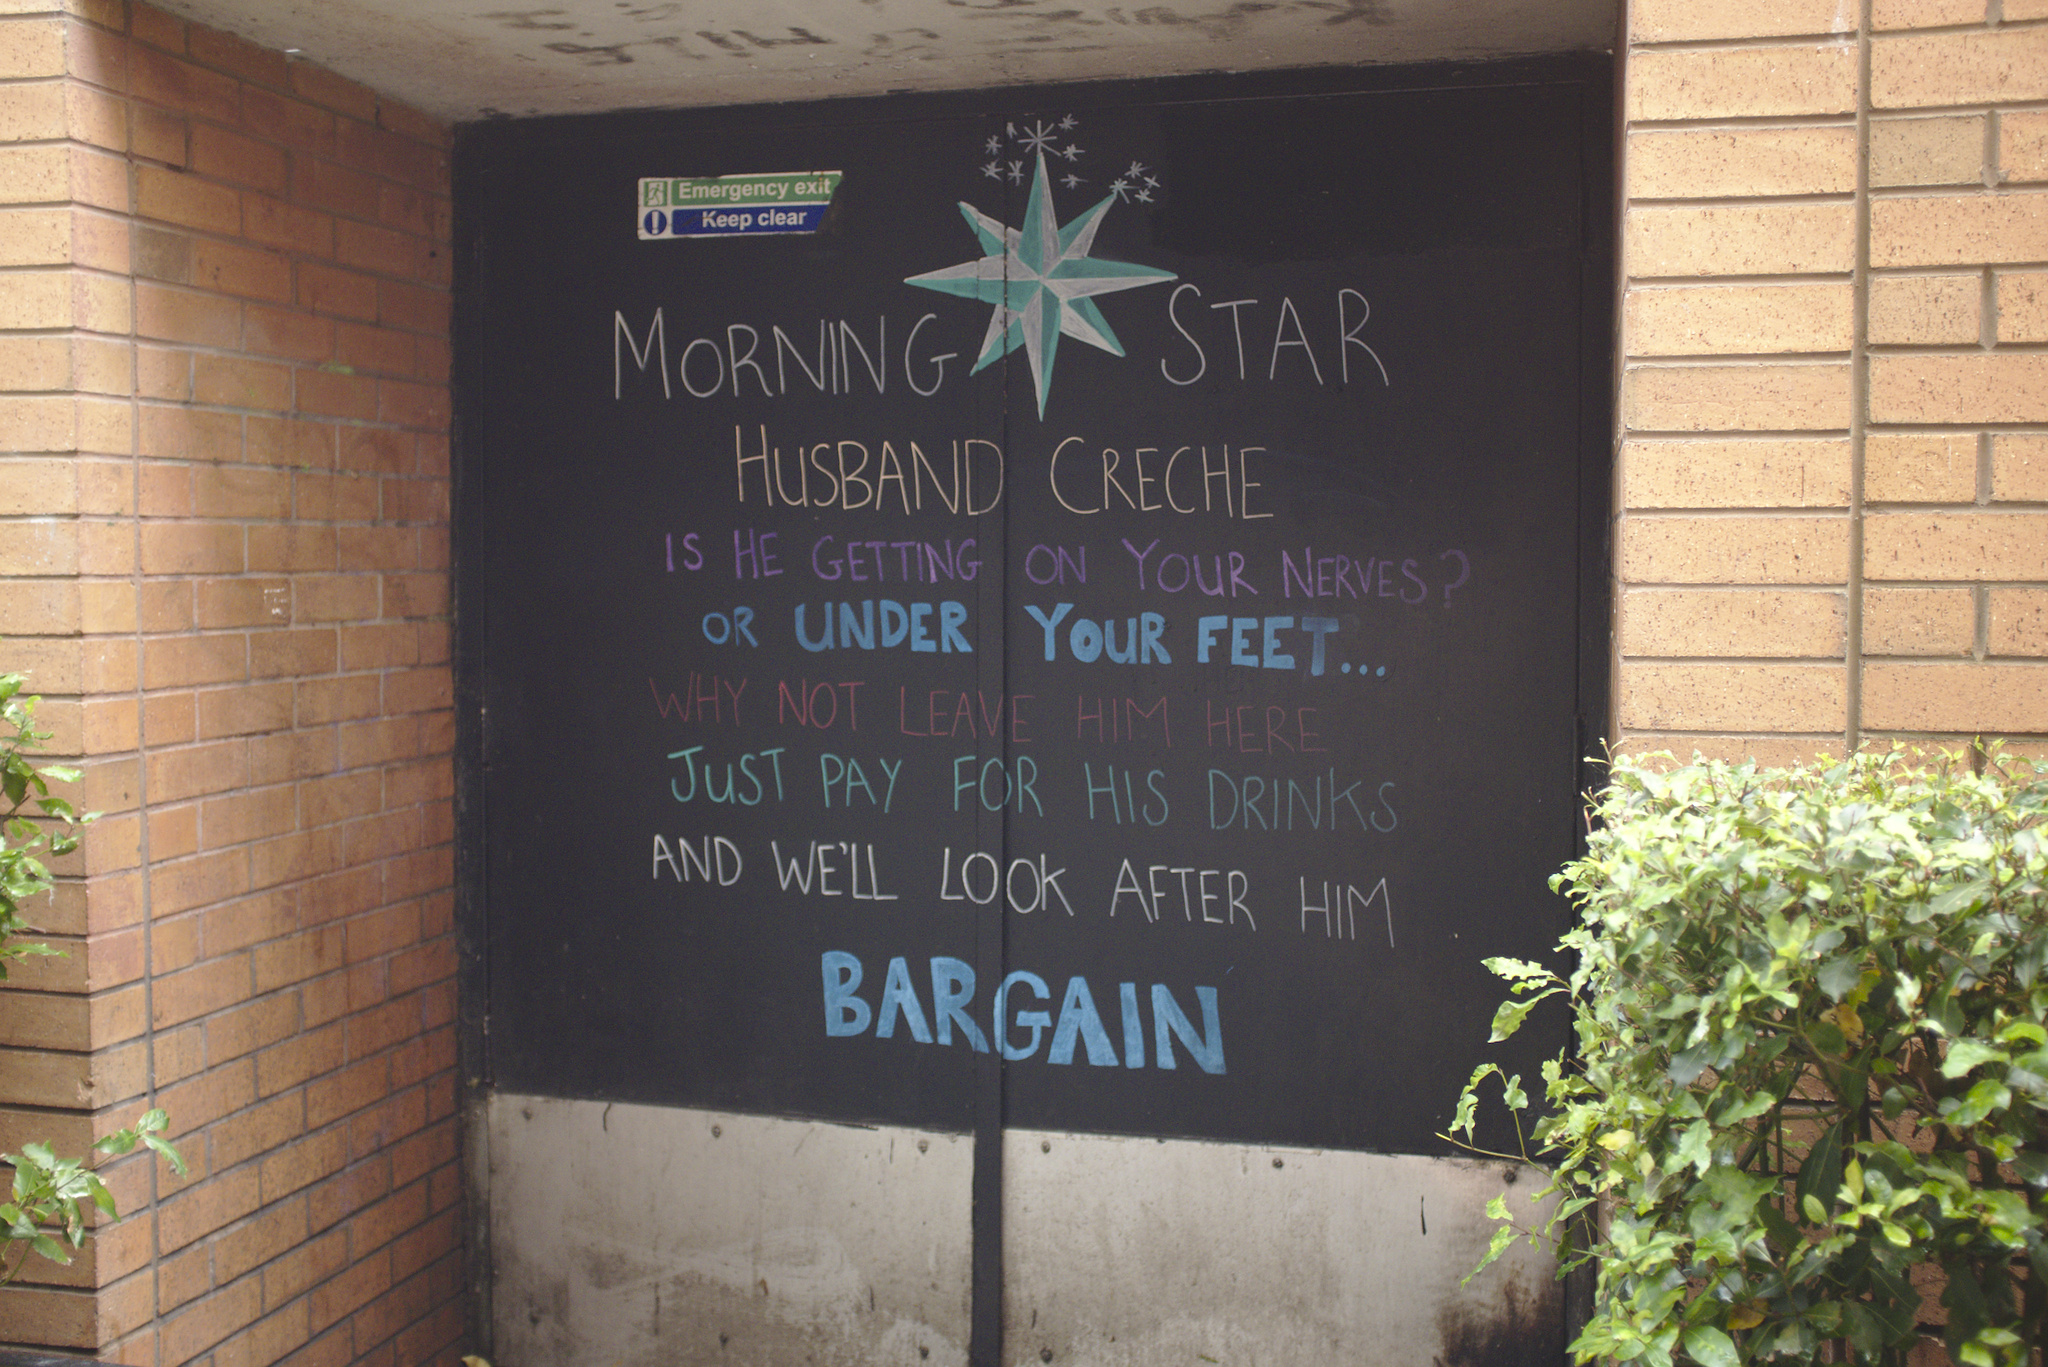 Emergency exit
Keep clear
MORNING STAR
HUSBAND CRECHE
IS HE GETTING ON YOUR NERVES?
OR UNDER YOUR FEET...
WHY NOT LEAVE HIM HERE
JUST PAY FOR HIS DRINKS
AND WE'LL LOOK AFTER HIM
BARGAIN